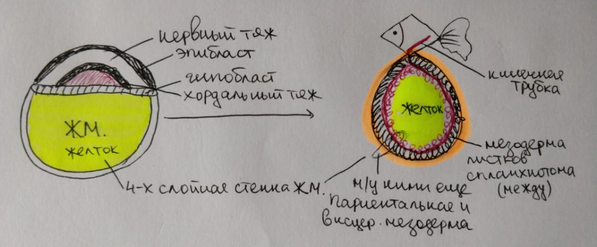 нервный тяж
эпибласт
гипобласт
хордальный тяж
ЖМ.
желток
4-х слойная стенка ЖМ.
кишечная
трубка
желток
мезодерма
листков
спланхнотома
(между)
м/у ними еще
париентальная и
висцер. мезодерма